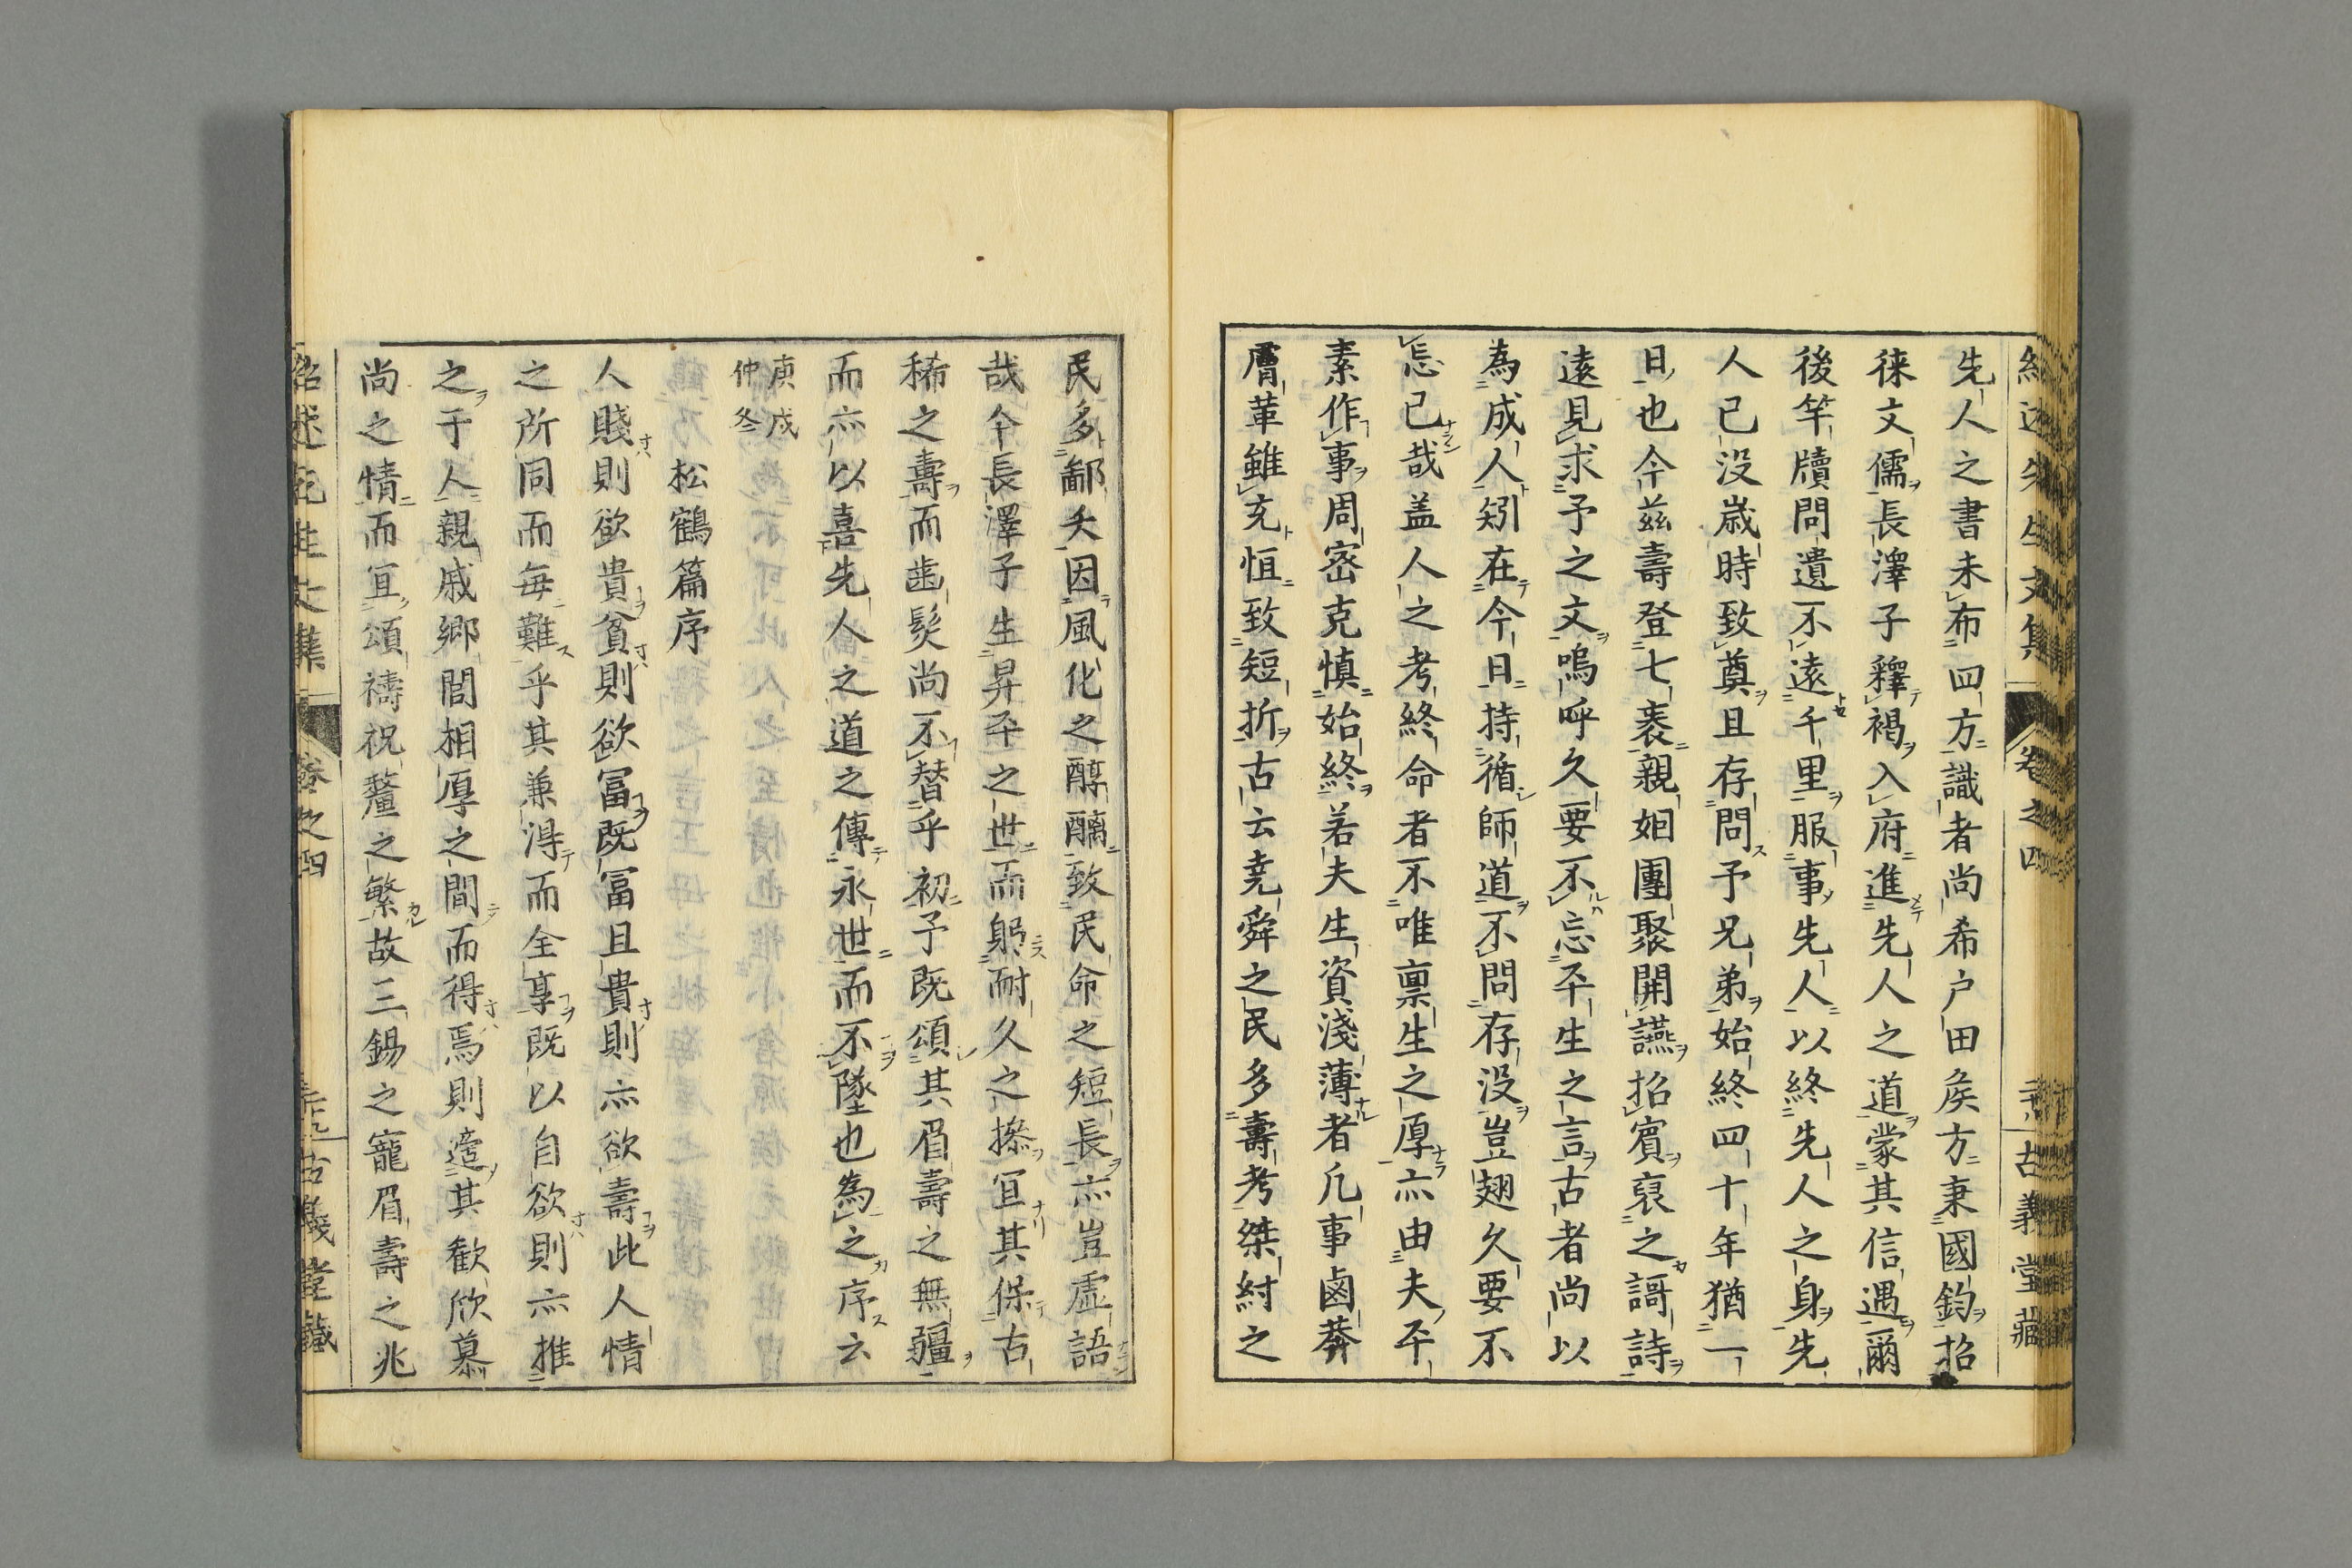 先人之書未布四方識者尚希户田矦方秉國鈞招
徠文儒長澤子釋褐入府進先人之道蒙其信遇爾
後竿牘問遺不遠千里服事先人以終先人之身先
人已没歳時致奠且存問予兄弟始終四十年猶一
日也今茲壽登七袠親姻團聚開讌招賓裒之謌詩
遠見求予之文嗚呼久要不忘平生之言古者尚以
為成人矧在今日持循師道不問存没豈翅久要不
忘已哉盖人之考終命者不唯禀生之厚亦由夫平
素作事周密克慎始終若夫生資淺薄者凢事鹵莽
膚革雖充恒致短折古云尭舜之民多壽考桀紂之
民多鄙夭因風化之醇醨致民命之短長亦豈虚語
哉今長澤子生昇平之世而躬耐久之操宜其保古
稀之壽而歯髪尚不替乎初予既頌其眉壽之無疆
而亦以喜先人之道之傳永世而不墜也為之序云
庚戌
仲冬
松鶴篇序
人賤則欲貴貧則欲冨既冨且貴則亦欲壽此人情
之所同而毎難乎其兼淂而全享既以自欲則亦推
之于人親戚鄉閭相厚之間而得焉則遂其歓欣慕
尚之情而宜頌禱祝釐之繁故三錫之寵眉壽之兆
紹述先生文集 卷之四 古義堂藏